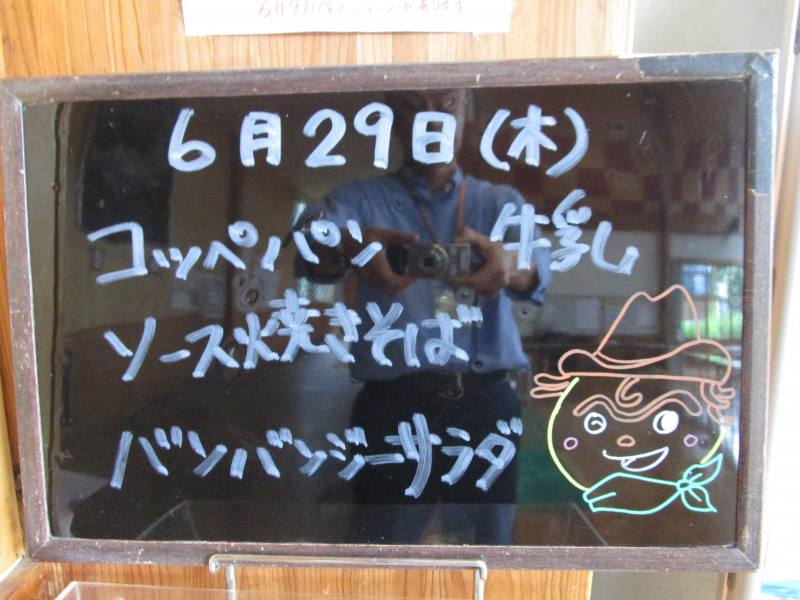 6月29日(木)
コッペパン 牛乳
ソース焼きそば
バンバンジーサラダ